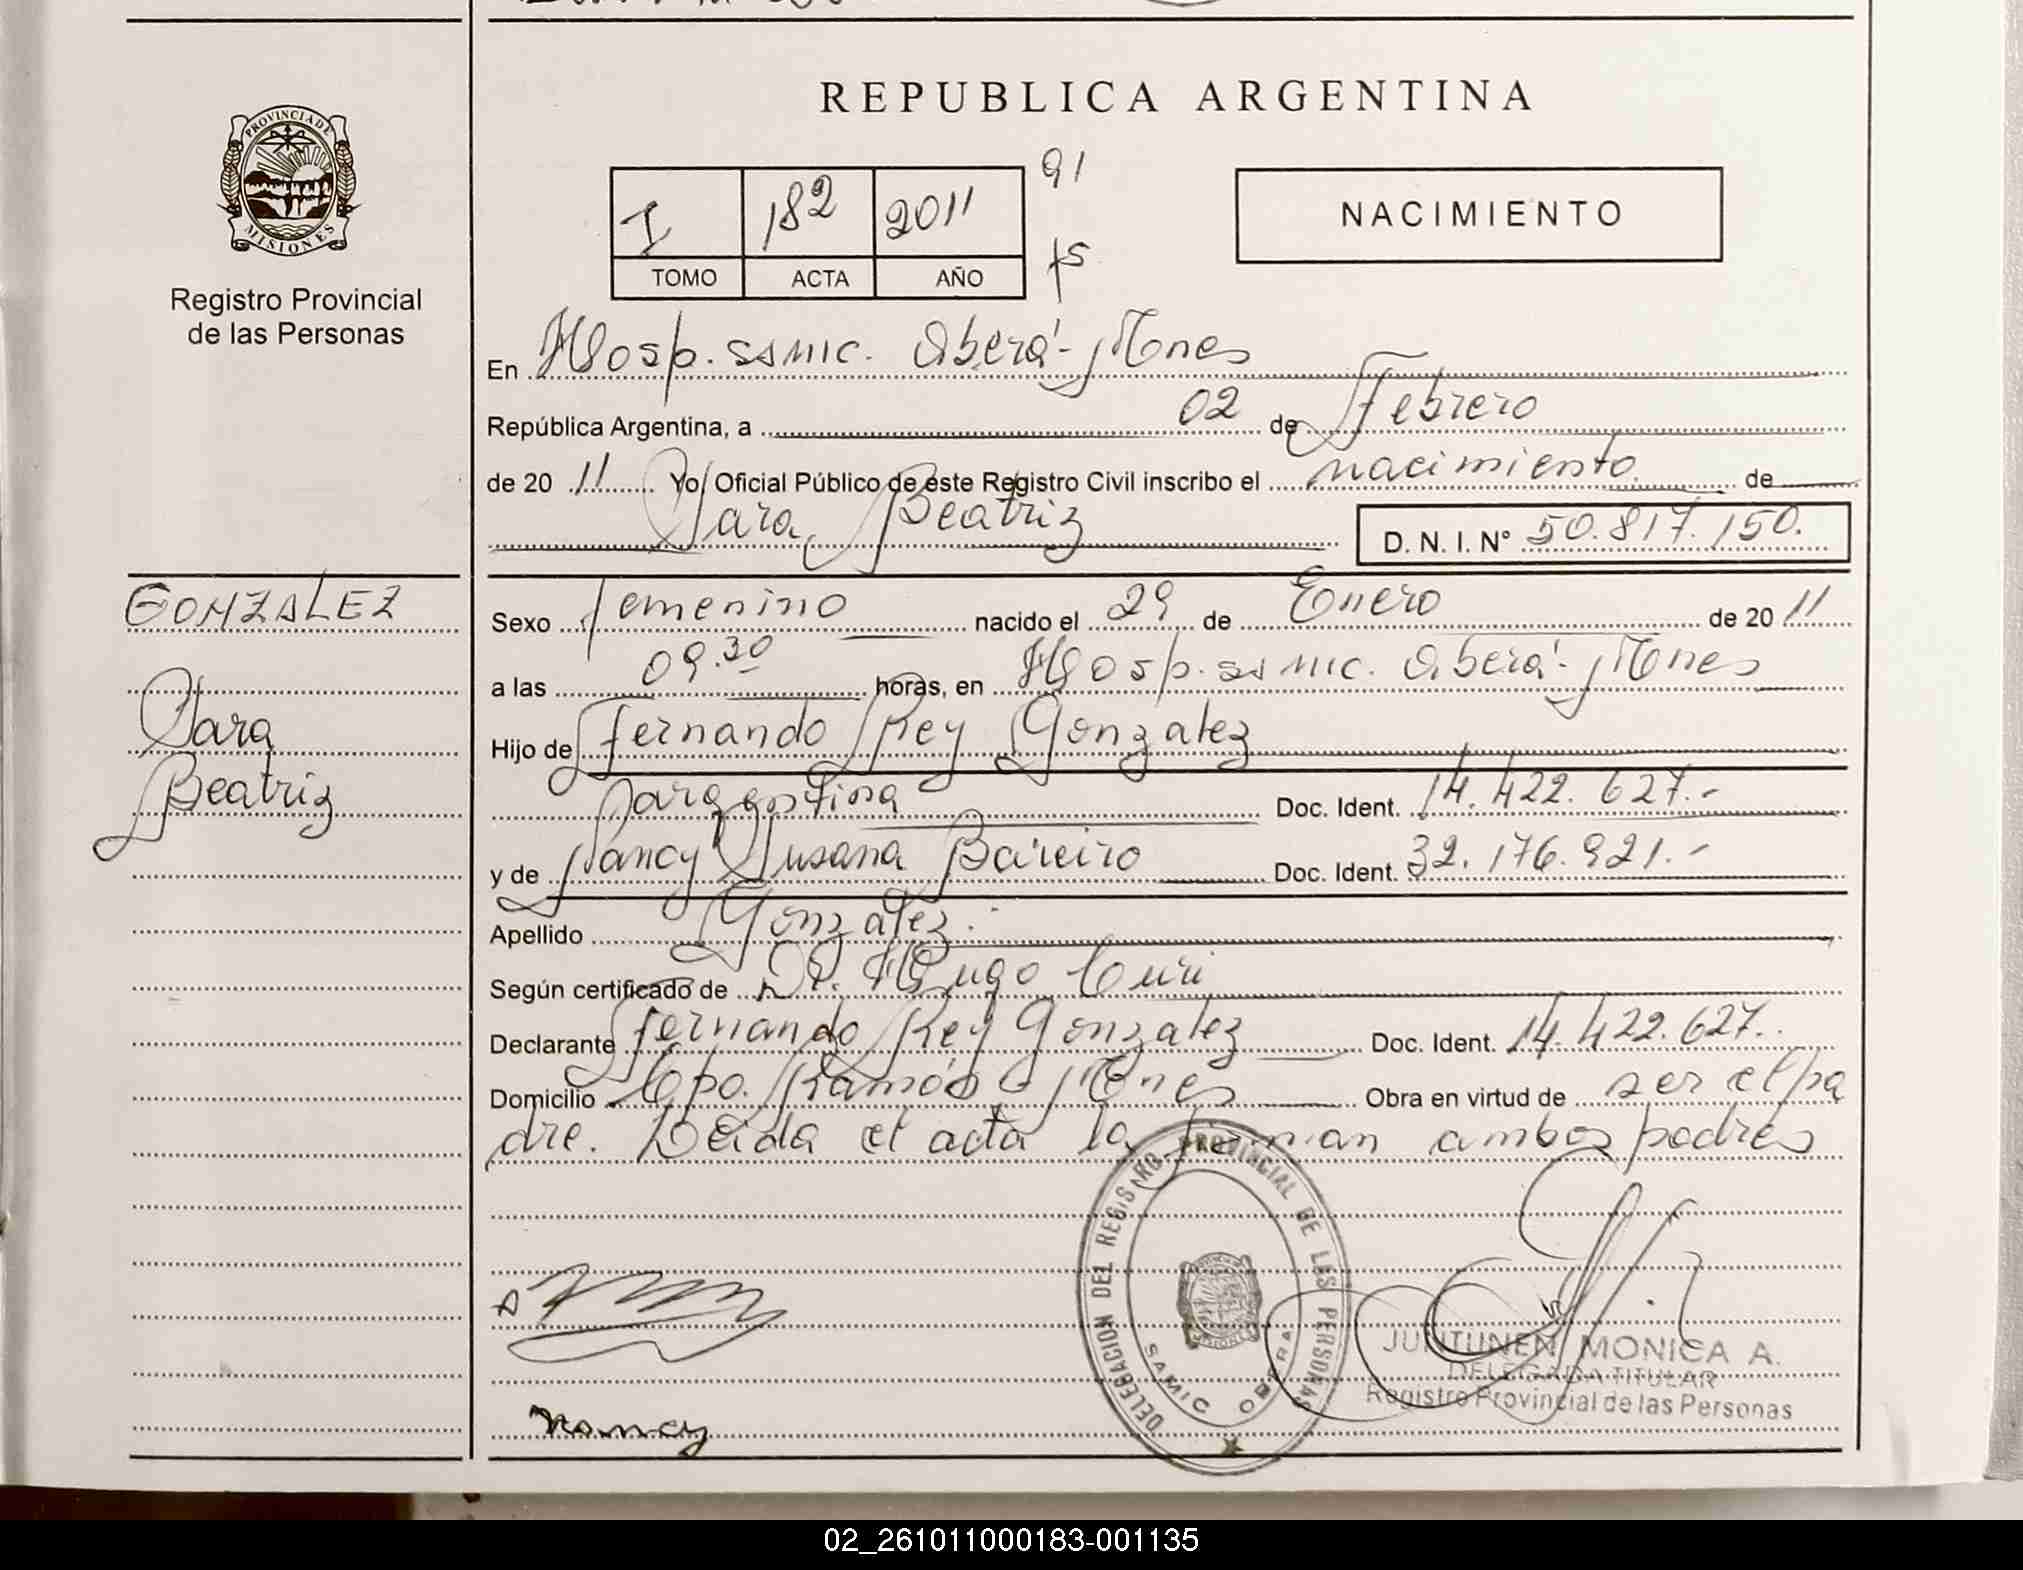 REPUBLICA ARGENTINA
PROVINCIA DE
MISIONES
Registro Provincial
de las Personas
I 182 2011 91
TOMO ACTA AÑO
NACIMIENTO
En Hosp. ssmic. Oberá - Mnes
República Argentina, a 02 de Febrero
de 20 11 Yo Oficial Público de este Registro Civil inscribo el nacimiento de
Sara Beatriz D. N. I. N° 50.817.150.
GONZALEZ
Sara
Beatriz
Sexo femenino nacido el 29 de Enero de 20 11
a las 09.30 horas, en Hosp. ssmic. Oberá - Mnes
Hijo de Fernando Rey Gonzalez
argentina Doc. Ident. 14.422.627.-
y de Nancy Susana Báreiro Doc. Ident. 32.176.921.-
Apellido Gonzalez.-
Según certificado de Dr. Hugo Curi
Declarante Fernando Rey Gonzalez Doc. Ident. 14.422.627.
Domicilio Cpo. Ramón Mnes Obra en virtud de ser el pa
dre. Leida el acta la firman ambos padres
DELEGACION DEL REGISTRO PROVINCIAL DE LAS PERSONAS
SAMIC OBERA
JUNTUNEN MONICA A.
DELEGADA TITULAR
Registro Provincial de las Personas
Nancy
02_261011000183-001135